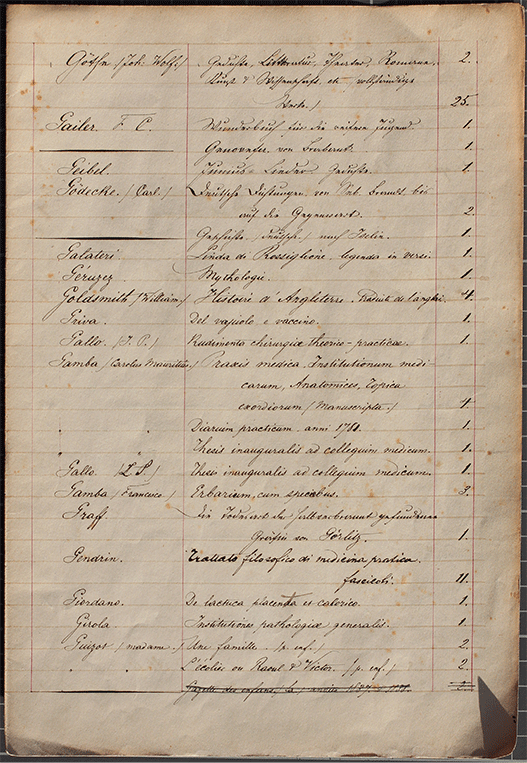 Göthe /Joh: Wolf./ Gedichte, Litteratur, Theater, Romane, 2.
Kunst & Wissenschaft. etc. vollständigst
Werke./ 25.
Gailer. F. C. Wunderbuch für die reifere Jugend. 1.
Genovefa. von 1.
Geibel. Junius-Lieder Gedichte. 1.
Gödecke. /Carl./ Deutsche Dichtungen. von Seb. Brandt. bis
auf die Gegenwart. 2.
Geschichte, /deutsche./ nach Iselin. 1.
Galateri. Linda di Rossiglione. legenda in versi. 1.
Géruzez Mythologie. 1.
Goldsmith /William/ Histoire d'Angleterre. Traduit de l'anglai. 4.
Griva. Del vajuolo e vaccino. 1.
Gallo. /J. P./ Rudimenta chirurgiæ theorico-practicae. 1.
Gamba /Carolus Mauritius/ Praxis medica. Institutionum medi-
carum, Anatomices, Topica
exordiorum /Manuscripta./ 4.
" " Diarium practicum. anni 1711. 1.
" " Thesis inauguralis ad collegium medicum. 1.
Gallo. /L. P./ Thesis inauguralis ad collegium medicum. 1.
Gamba /Francesco/ Erbarium, cum speciebus. 3.
Graff. Die Todesart der halbverbrannt gefundenen
Gräfin von Görlitz. 1.
Gendrin. Trattato filosofico di medicina pratica.
fascicoli. 11.
Giordano. De lactica placenta et calorico. 1.
Girola. Institutiones pathologiæ generalis. 1.
Guizot /madame./ Une famille. /p. enf./ 2.
L'écolier ou Raoul & Victor. /p. enf./ 2.
Gazette des enfans, /La/ année